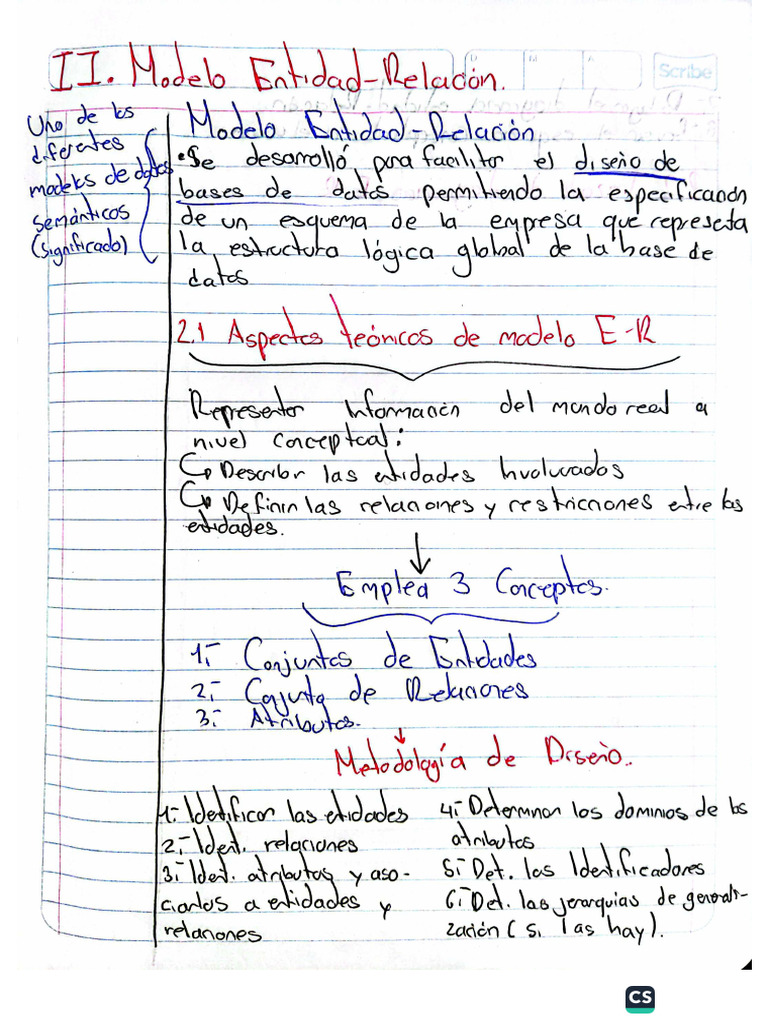 II. Modelo Entidad-Relación.
D M A
Scribe
Uno de los
diferentes
modelos de datos
semánticos
(significado)
Modelo Entidad-Relación
•Se desarrolló para facilitar el diseño de
bases de datos permitiendo la especificación
de un esquema de la empresa que representa
la estructura lógica global de la base de
datos
2.1 Aspectos teóricos de modelo E-R
Representar información del mundo real a
nivel conceptual:
↳ Describir las entidades involucrados
↳ Definir las relaciones y restricciones entre las
entidades.
↓
Emplea 3 Conceptos.
1.- Conjuntos de Entidades
2.- Conjunto de Relaciones
3.- Atributos.
↓
Metodología de Diseño.
1.- Identificar las entidades
2.- Ident. relaciones
3.- Ident. atributos y aso-
ciarlos a entidades y
relaciones
4.- Determinan los dominios de los
atributos
5.- Det. los Identificadores
6.- Det. las jerarquias de generali-
zación (si las hay).
CS